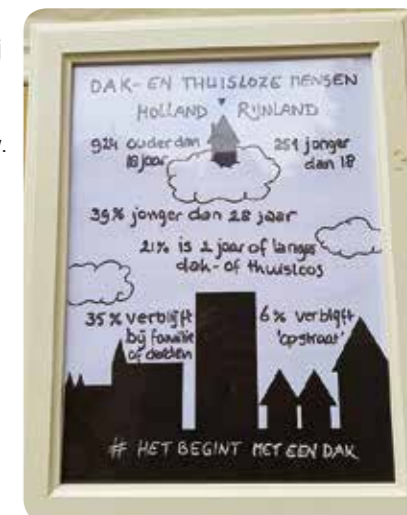 DAK- EN THUISLOZE MENSEN
HOLLAND RIJNLAND
924 ouder dan
18 jaar
251 jonger
dan 18
39% jonger dan 28 jaar
21% is 2 jaar of langer
dak- of thuisloos
35% verblijft
bij familie
of derden
6% verblijft
'op straat'
# HET BEGINT MET EEN DAK